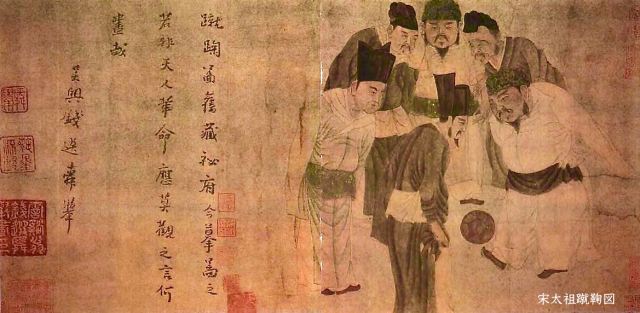 蹴踘圖舊藏秘府今摹圖之
若非天人革命應莫觀之言何
畫哉
吳興錢選舜舉
宋太祖蹴鞠図